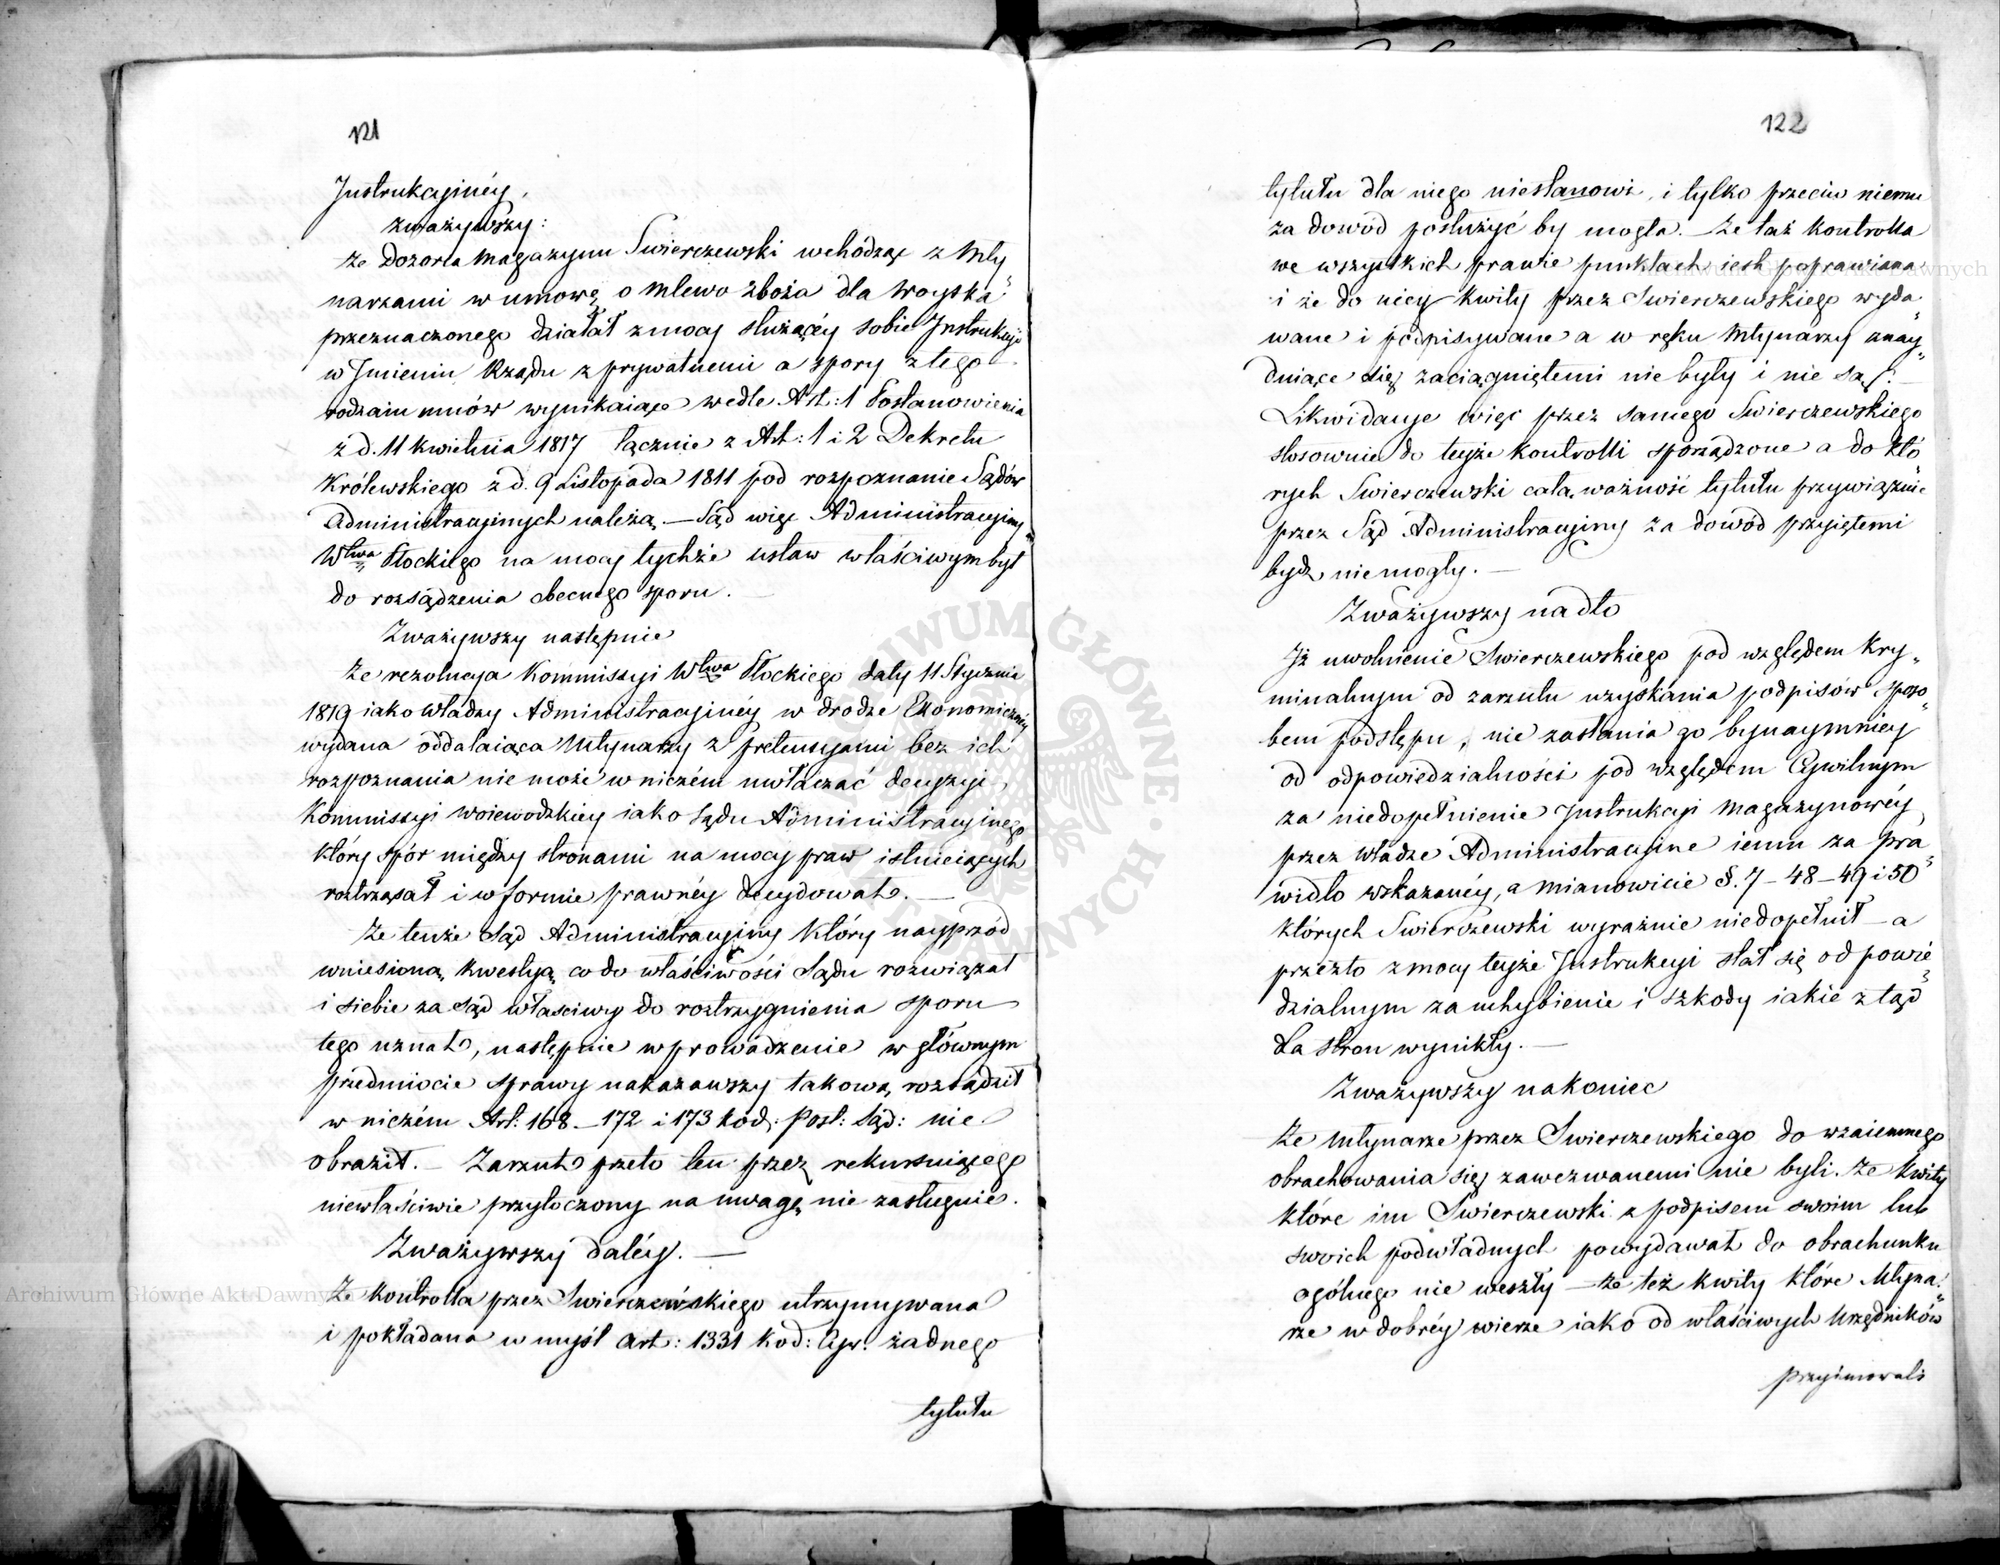 121
Instrukcyinéy.
zważywszy:
że Dozorca Magazynu Swierczewski wchódząc z Mły„
narzami w umowę o mlewo zboża dla woyska
przeznaczonego działał z mocy służącéy sobie Instrukcyi
w Imieniu Rządu z prywatnemi a spory z tego
rodzaiu umów wynikaiące wedle Art: 1 Postanowienia
z d. 11 kwietnia 1817 łącznie z Art: 1 i 2 Dekretu
Królewskiego z d. 9 Listopada 1811 pod rozpoznanie Sądów
Administracyinych należą — Sąd więc Administracyiny
Wtwa Płockiego na mocy tychże ustaw właściwym był
do rozsądzenia obecnego sporu. —
Zważywszy następnie
że rezolucya Kommissyi Wtwa Płockiego daty 11 Stycznia
1819 iako władzy Administracyinéy w drodze Ekonomicznéy
wydana oddalaiąca Młynarzy z pretensyami bez ich
rozpoznania nie może w niczém uwłaczać decyzyi
Kommissyi woiewodzkiey iako Sądu Administracyinego
który spór między stronami na mocy praw istnieiących
roztrząsał i w formie prawnéy decydował. —
że tenże Sąd Administracyiny który nayprzód
wniesioną kwestyą co do właściwości Sądu rozwiązał
i siebie za sąd właściwy do roztrzygnienia sporu
tego uznał, następnie wprowadzenie w głównym
przedmiocie sprawy nakazawszy takową rozsądził
w niczém Art: 168 – 172 i 173 kod: Post: Sąd: nie
obraził. — Zarzut przeto ten przez rekursuiącego
niewłaściwie przytoczony na uwagę nie zasługuie.
Zważywszy daléy. —
Że kontrolla przez Swierczewskiego utrzymywana
i pokładana w myśl art: 1331 kod: Cyw: żadnego
tytułu
122
tytułu dla niego niestanowi, i tylko przeciw niemu
za dowód posłużyć by mogła. Że taż kontrolla
we wszystkich prawie punktach iest poprawiana
i że do niey kwity przez Swierczewskiego wyda„
wane i podpisywane a w ręku Młynarzy znay„
duiące się zaciągniętemi nie były i nie są. —
Likwidacye więc przez samego Swierczewskiego
stosownie do teyże kontrolli sporządzone a do któ„
rych Swierczewski całą ważność tytułu przywiązuie
przez Sąd Administracyiny za dowód przyiętemi
bydź niemogły. —
Zważywszy nadto
Iż uwolnienie Swierczewskiego pod względem kry„
minalnym od zarzutu uzyskania podpisów sposo„
bem podstępu, nie zasłania go bynaymniey
od odpowiedzialności pod względem Cywilnym
za niedopełnienie Instrukcyi Magazynowéy,
przez władze Administracyine iemu za pra„
widło wskazanéy, a mianowicie §. 7 – 48 – 49 i 50
których Swierczewski wyraźnie niedopełnił — a
przezto z mocy teyże Instrukcyi stał się odpowie„
dzialnym za uchybienie i szkody iakie ztąd
dla stron wynikły. —
Zważywszy nakoniec
że Młynarze przez Swierczewskiego do wzaiemnego
obrachowania się zawezwanemi nie byli. Że kwity
które im Swierczewski z podpisem swoim lub
swoich podwładnych powydawał do obrachunku
ogólnego nie weszły — że też kwity które Młyna„
rze w dobréy wierze iako od właściwych Urzędników
przyimowali